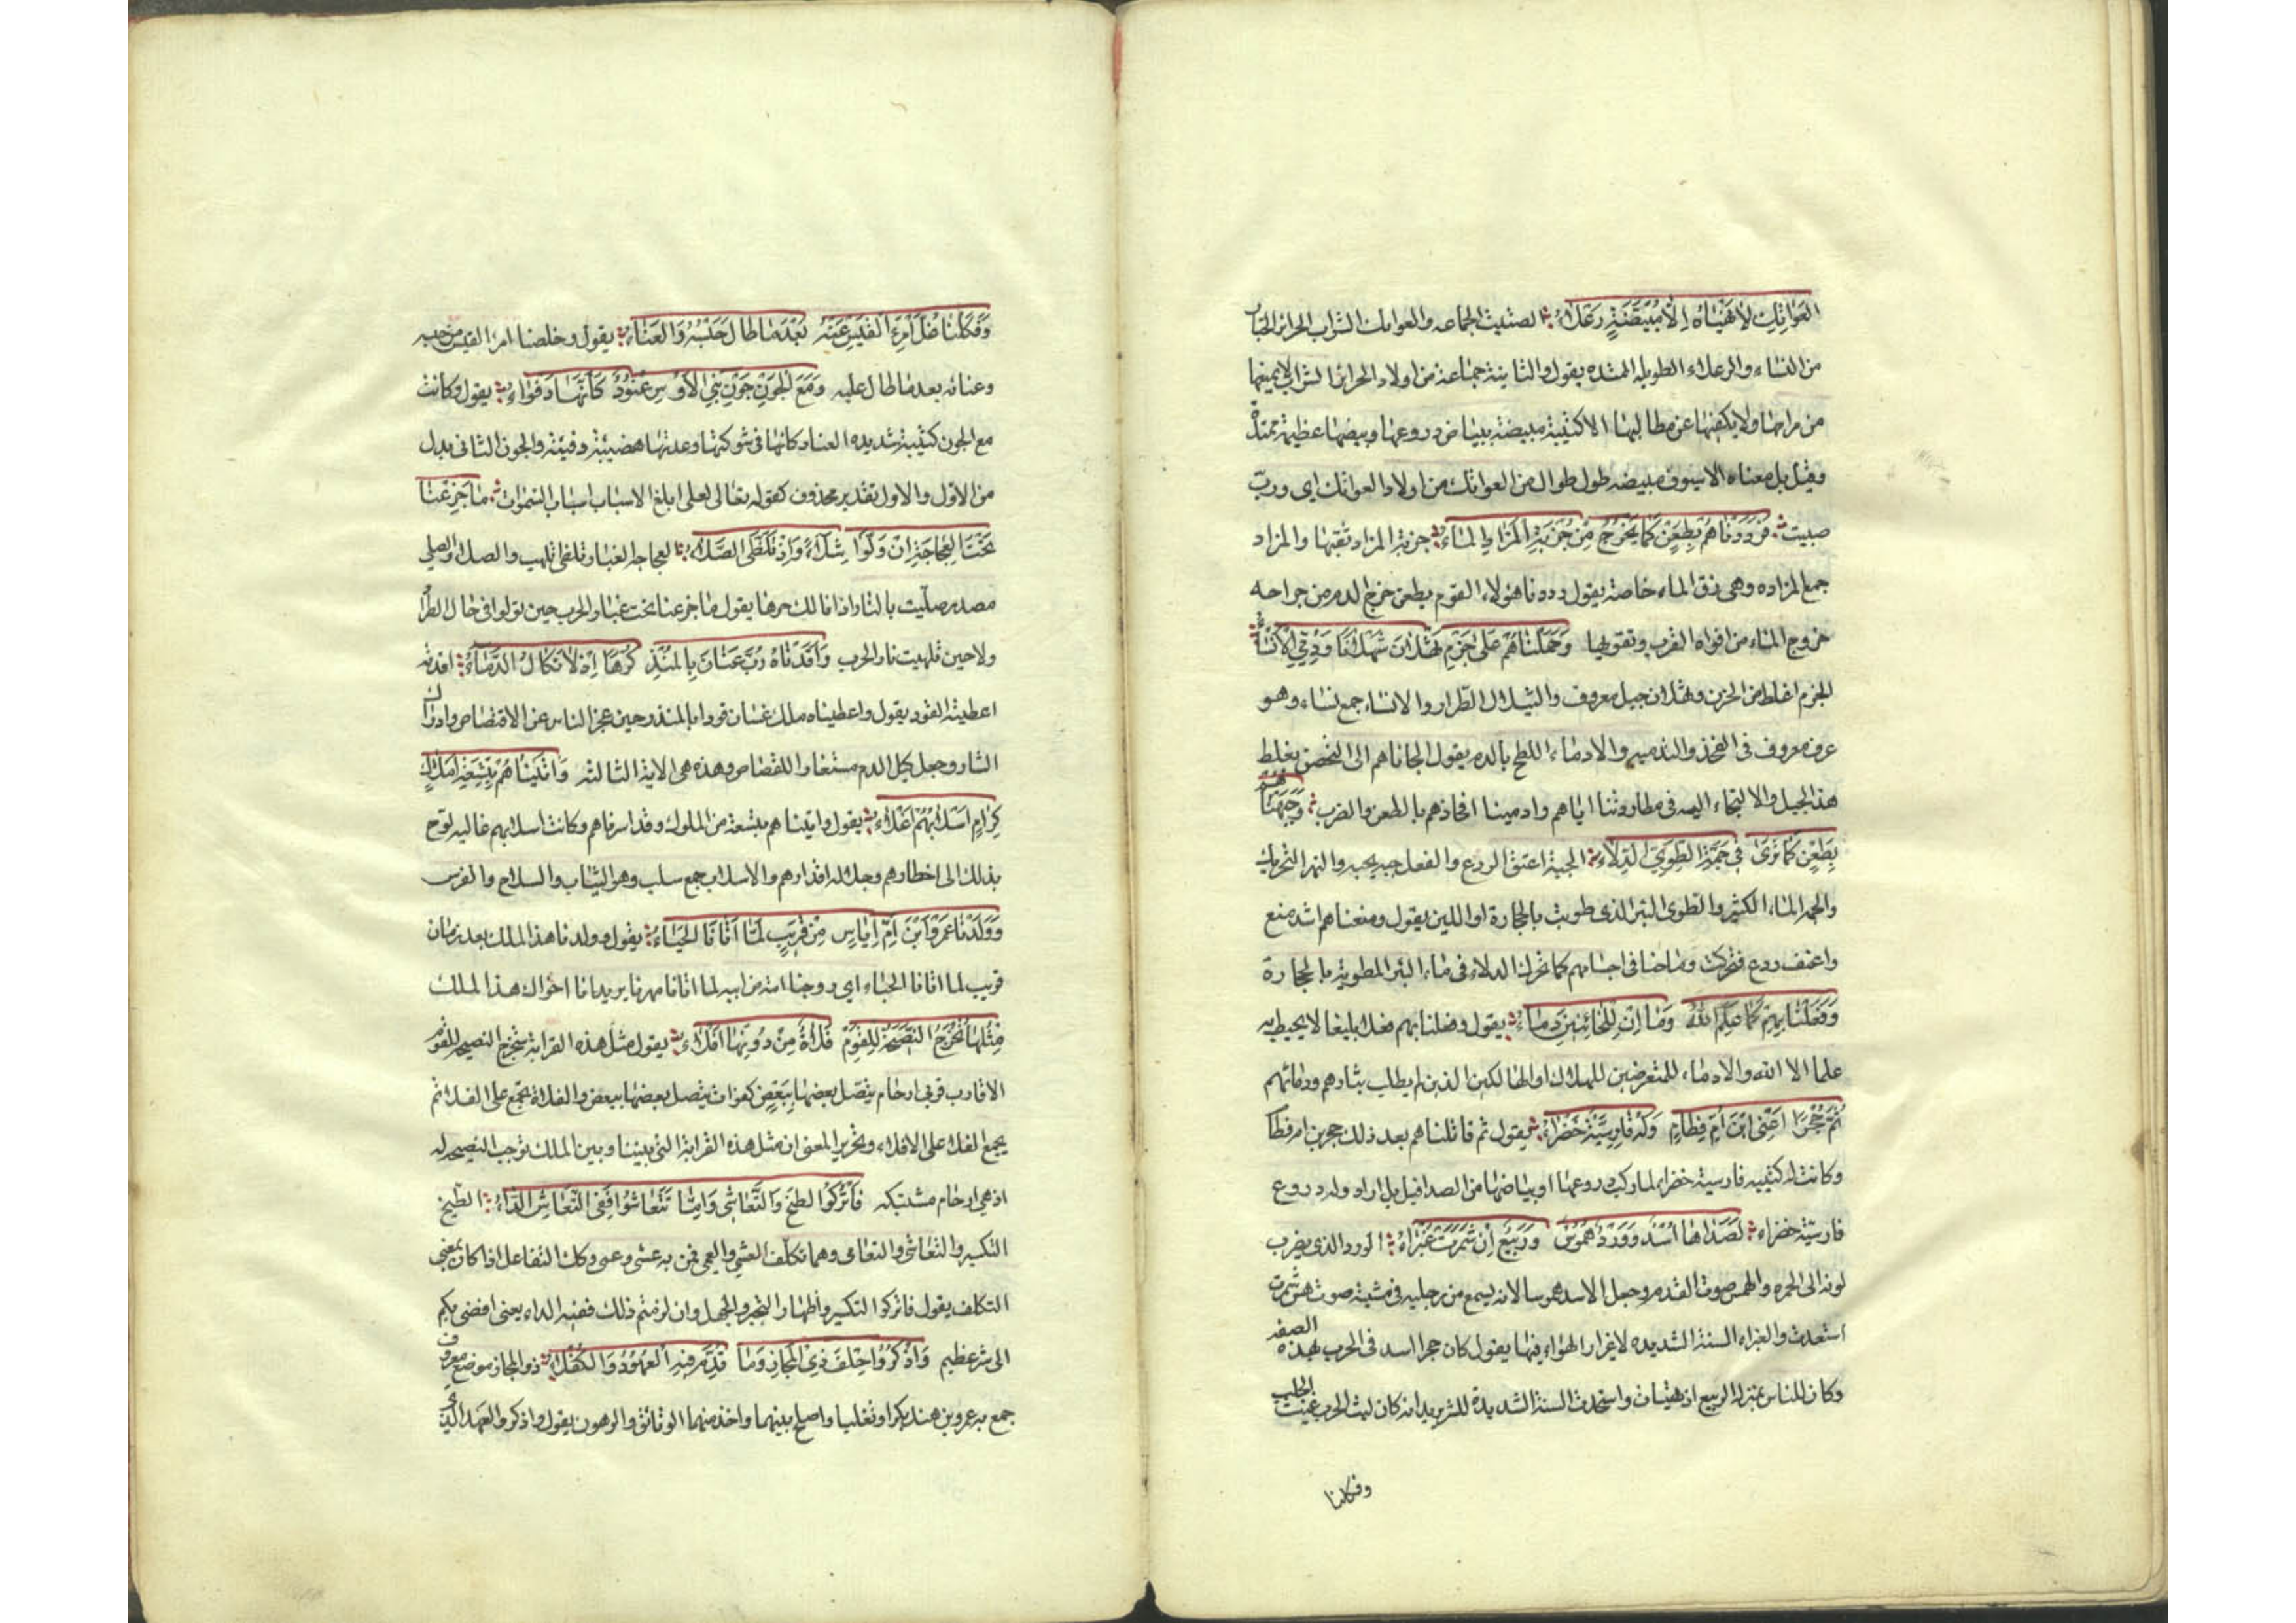 العَوَاتِكِ لَا تَنْهَاهُ اِلَّا مُبْيَضَّةٌ رَعْلَاءُ الصتيت الجماعه والعواتك الشواب الحرائر الخيار
من النساء والرعلاء الطويله الممتده يقول والثانية جماعة من اولاد الحرائر الشواب لا يمنعها
من مرامها ولا يكفها عن مطالبها الا كتيبة مبيضة ببياض دروعها وبيضها عظيمة ممتدة
وقيل بل معناه الا سيوف مبيضه طول طوال من العواتك من اولاد العواتك اى ورب
صتيت فَرَدَدْنَاهُمْ بِطَعْنٍ كَمَا يَخْرُجُ مِنْ خُرْبَةِ المَزَادِ المَاءُ خربة المزاد ثقبها والمزاد
جمع المزاده وهى زق الماء خاصة يقول رددنا هؤلاء القوم بطعن خرج الدم من جراحه
خروج الماء من افواه القرب وثقوبها وَحَمَلْنَاهُمْ عَلَى حَزْمِ ثَهْلَانَ شَلَالًا وَدُمِّيَ الأَنْسَاءُ
الحزم اغلظ من الحزن وثهلان جبل معروف والشلال الطراد والانساء جمع نساء وهو
عرق معروف فى الفخذ والتدميه والادماء اللطخ بالدم يقول الجاناهم الى التحصن بغلظ
هذا الجبل والالتجاء اليه فى مطاردتنا اياهم وادمينا افخاذهم بالطعن والضرب وَجَبَهْنَاهُمْ
بِطَعْنٍ كَمَا تُنْهَزُ فِي جَمَّةِ الطَّوِيِّ الدِّلَاءُ الجبه اعنف الردع والفعل جبه يجبه والنهز التحريك
والجمه الماء الكثير والطوى البئر الذى طويت بالحجارة او اللبن يقول ومنعناهم اشد منع
واعنف ردع فتحركت رماحنا فى اجسامهم كما تحرك الدلاء فى ماء البئر المطوية بالحجارة
وَفَعَلْنَا بِهِمْ كَمَا عَلِمَ اللهُ وَمَا اِنْ لِلْخَائِنِينَ دِمَاءُ يقول وفعلنا بهم فعلا بليغا لا يحيط به
علما الا الله ولا دماء للمتعرضين للهلاك او الهالكين الذين لم يطلب بثارهم ودمائهم
ثُمَّ حُجْرًا اَعْنِى ابْنَ اُمِّ قَطَامٍ وَلَهُ فَارِسِيَّةٌ خَضْرَاءُ يقول ثم قاتلنا بعد ذلك حجر بن ام قطام
وكانت له كتيبه فارسية خضراء لما ركب دروعها وبياضها من الصدا قيل بل اراد وله دروع
فارسيّة خضراء اَسَدٌ فِى اللِّقَاءِ وَرْدٌ هَمُوسٌ وَرَبِيعٌ اِنْ شَمَّرَتْ غَبْرَاءُ الورد الذى يضرب
لونه الى الحمره والهمس صوت القدم وجعل الاسد هموسا لانه يسمع من رجليه فى مشيته صوت همس شمرت
استعدت والغبراء السنة الشديده لاغبرار الهواء فيها يقول كان حجر اسد فى الحرب بهذه الصفه
وكان للناس بمنزلة الربيع اذ تهيات واستعدت السنة الشديدة للشر يريد انه كان ليث الحرب غيث الجدب
وفككنا
وَفَكَكْنَا غُلَّ امْرِئِ القَيْسِ عَنْهُ بَعْدَمَا طَالَ حَبْسُهُ وَالعَنَاءُ يقول وخلصنا امرا القيس من حبسه
وعنائه بعد ما طال عليه وَمَعَ الجَوْنِ جَوْنِ بَنِي الأَوْسِ عَنُودٌ كَأَنَّهَا دَفْوَاءُ يقول وكانت
مع الجون كتيبة شديدة العناد كانها فى شوكتها وعدتها هضيبة دفيئة والجون الثانى بدل
من الاول والاول بتقدير محذوف كقوله تعالى لعلى ابلغ الاسباب اسباب السموات مَا جَزِعْنَا
تَحْتَ العَجَاجَةِ اِذْ وَلَّوْا شِلَالًا وَاِذْ تَلَظَّى الصَّلَاءُ العجاجه الغبار وتلظى تلهب والصلاء والصلى
مصدر صليت بالنار اذا نالك حرها يقول ما جزعنا تحت غبار الحرب حين تولوا فى حال الطرد
ولا حين تلهبت نار الحرب وَاَقَدْنَاهُ رَبَّ غَسَّانَ بِالمُنْذِرِ كَرْهًا اِذْ لَا تُكَالُ الدِّمَاءُ اقدته
اعطيته القود يقول واعطيناه ملك غسان قودا بالمنذر حين عجز الناس عن الاقتصاص وادراك
الثار وجعل كيل الدم مستعارا للقصاص وهذه هى الاية الثالثه وَاَتَيْنَاهُمْ بِتِسْعَةِ اَمْلَاكٍ
كِرَامٍ اَسْلَابُهُمْ اَغْلَاءُ يقول واتيناهم بتسعة من الملوك وقد اسرناهم وكانت اسلابهم غاليه لوح
بذلك الى اخطارهم وجلاله اقدارهم والاسلاب جمع سلب وهو الثياب والسلاح والفرس
وَوَلَدْنَا عَمْرَو ابْنَ اُمِّ اِيَاسٍ مِنْ قَرِيبٍ لَمَّا اَتَانَا الحِبَاءُ يقول وولدنا هذا الملك بعد زمان
قريب لما اتانا الحباء اى زوجنا امه من ابيه لما اتانا مهرنا يريد انا اخوال هذا الملك
مِثْلُهَا تُخْرِجُ النَّصِيحَةَ لِلْقَوْمِ فَلَاةٌ مِنْ دُونِهَا اَفْلَاءُ يقول مثل هذه القرابة تخرج النصيحه للقوم
الاقارب قربى ارحام يتصل بعضها ببعض كفلوات يتصل بعضها ببعض والفلاة تجمع على الفلا ثم
يجمع الفلا على الافلاء وتحرير المعنى ان مثل هذه القرابة التى بيننا وبين الملك توجب النصيحه له
اذ هى ارحام مشتبكه فَاتْرُكُوا الطَّيْخَ وَالتَّعَاشِي وَاِمَّا تَتَعَاشَوْا فَفِى التَّعَاشِى الدَّاءُ الطيخ
التكبر والتعاشى والتعامى وهما تكلف العشى والعمى ممن به عشى وعمى وكذلك التفاعل اذا كان بمعنى
التكلف يقول فاتركوا التكبر واظهار التجبر والجهل وان لزمتم ذلك ففيه الداء يعنى افضى بكم
الى شر عظيم وَاذْكُرُوا حِلْفَ ذِى المَجَازِ وَمَا قُدِّمَ فِيهِ العُهُودُ وَالكُفَلَاءُ ذو المجاز موضع معروف
جمع به عمرو بن هند بكرا وتغلبا واصلح بينهما واخذ منهما الوثائق والرهون يقول واذكروا العهد الذى